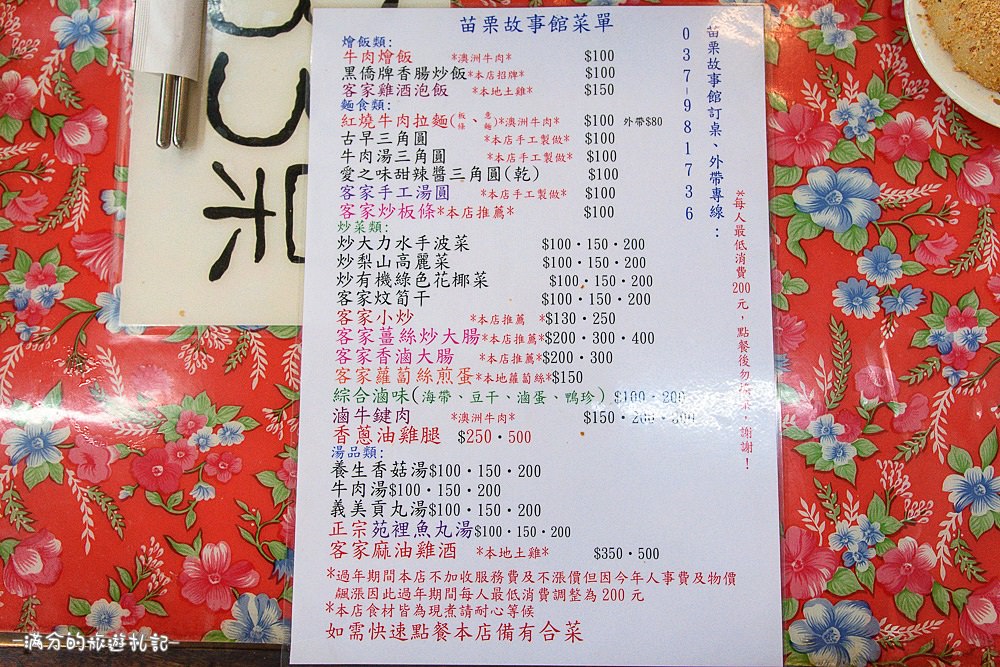 苗栗故事館菜單
燴飯類:
牛肉燴飯 *澳洲牛肉* $100
黑僑牌香腸炒飯*本店招牌* $100
客家雞酒泡飯 *本地土雞* $150
麵食類:
紅燒牛肉拉麵(板條、意麵)*澳洲牛肉* $100 外帶$80
古早三角圓 *本店手工製做* $100
牛肉湯三角圓 *本店手工製做* $100
愛之味甜辣醬三角圓(乾) $100
客家手工湯圓 *本店手工製做* $100
客家炒板條*本店推薦* $100
炒菜類:
炒大力水手波菜 $100·150·200
炒梨山高麗菜 $100·150·200
炒有機綠色花椰菜 $100·150·200
客家炆筍干 $100·150·200
客家小炒 *本店推薦 *$130·250
客家薑絲炒大腸*本店推薦*$200·300·400
客家香滷大腸 *本店推薦*$200·300
客家蘿蔔絲煎蛋*本地蘿蔔絲*$150
綜合滷味(海帶、豆干、滷蛋、鴨珍) $100·200
滷牛鍵肉 *澳洲牛肉* $150·200·300
香蔥油雞腿 $250·500
湯品類:
養生香菇湯$100·150·200
牛肉湯$100·150·200
義美貢丸湯$100·150·200
正宗苑裡魚丸湯$100·150·200
客家麻油雞酒 *本地土雞* $350·500
*過年期間本店不加收服務費及不漲價但因今年人事費及物價
飆漲因此過年期間每人最低消費調整為 200 元
*本店食材皆為現煮請耐心等候
如需快速點餐本店備有合菜
苗栗故事館訂桌、外帶專線:
037-981736
*每人最低消費200元,點餐後勿退菜,謝謝!
-滿分的旅遊札記-